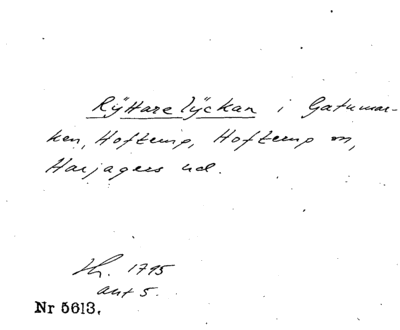 Rÿttarelÿckan i Gatumar-
ken, Hofterup, Hofterup sn,
Harjagers hd.
Hr. 1795
akt 5.
Nr 5613.